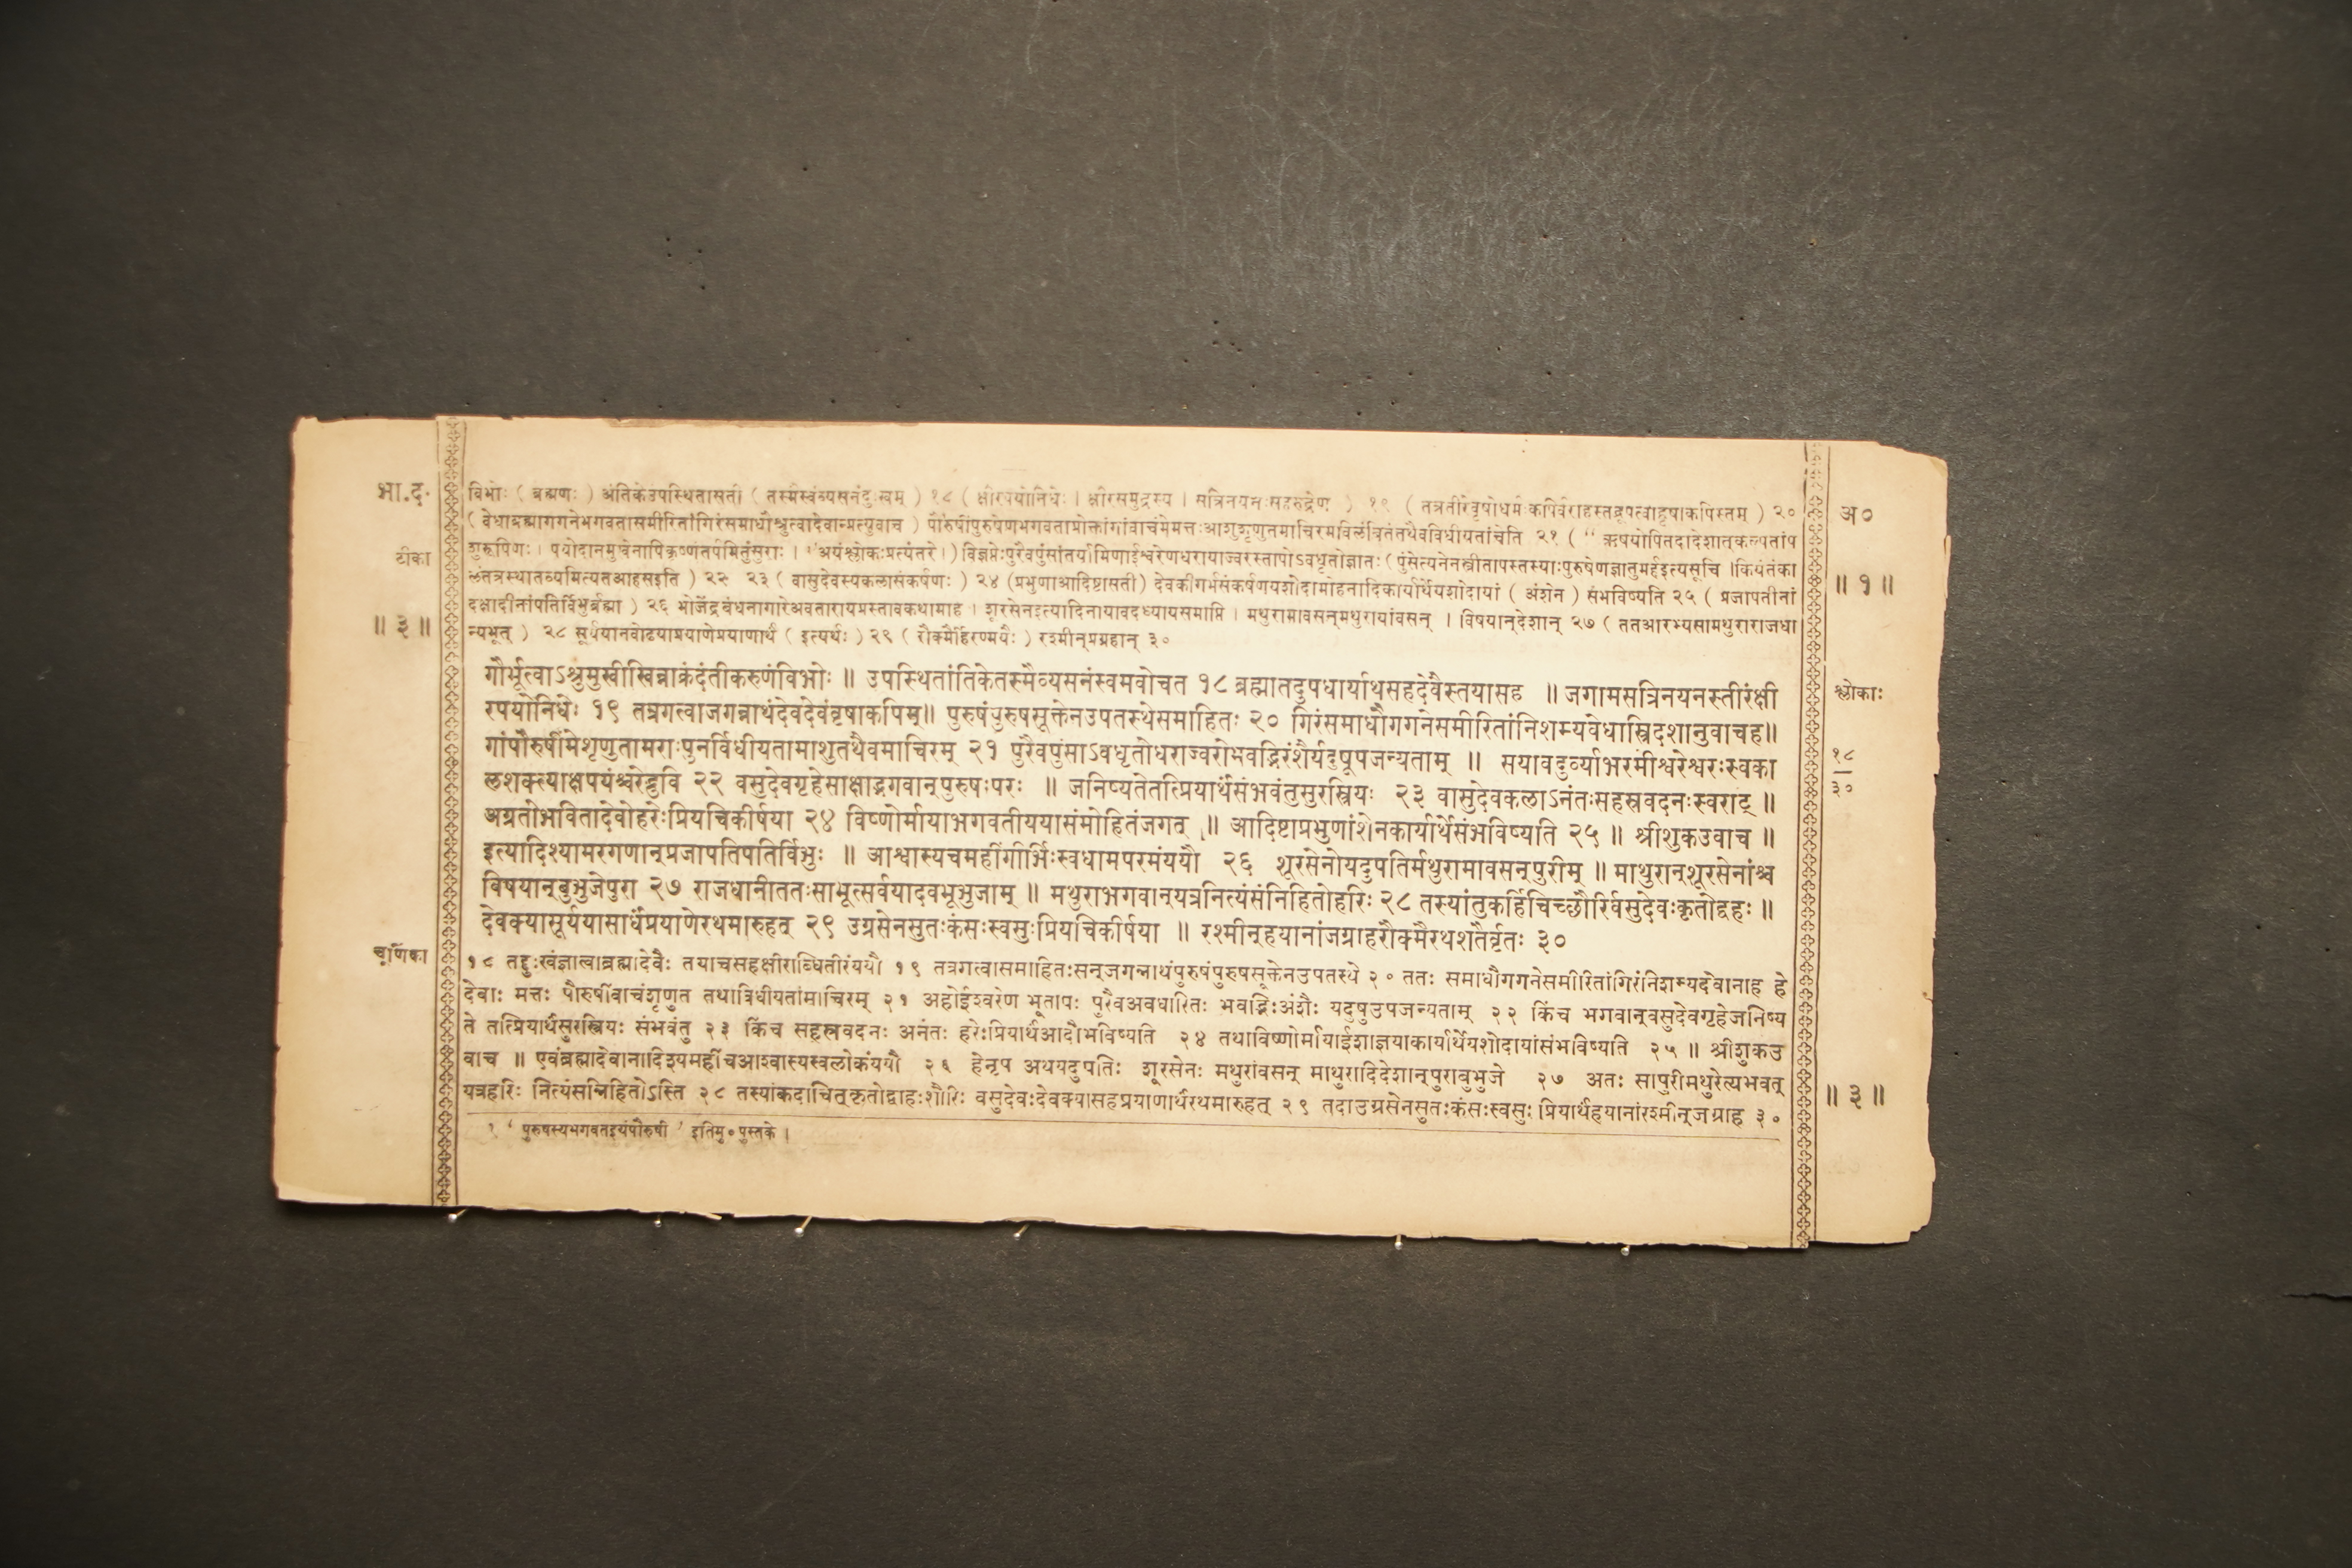 भा.द.
टीका
॥ ३ ॥
चूर्णिका
विभोः ( ब्रह्मणः ) अंतिकेउपस्थितासती ( तस्मैस्वंव्यसनंदुःखम् ) १८ ( क्षीरपयोनिधेः । क्षीरसमुद्रस्य । सत्रिनयनःसहरुद्रेण ) १९ ( तत्रतीरेवृषोधर्मःकपिर्वराहस्तद्रूपत्वाद्वृषाकपिस्तम् ) २०
( वेधाब्रह्मागगनेभगवतासमीरितांगिरंसमाधौश्रुत्वादेवान्प्रत्युवाच ) पौरुषींपुरुषेणभगवताप्रोक्तांगांवाचंमेमत्तःआशुशृणुतमाचिरमविलंबितंतथैवविधीयतांचेति २१ ( “ ऋषयोपितदादेशात्कल्पतांप
शुरूपिणः । पयोदानमुखेनापिकृष्णंतर्पमितुंसुराः । ”अयंश्लोकःप्रत्यंतरे।) विज्ञप्तेःपुरैवपुंसांतर्यामिणाईश्वरेणधरायाज्वरस्तापोऽवधृतोज्ञातः ( पुंसेत्यनेनस्त्रीतापस्तस्याःपुरुषेणज्ञातुमर्हइत्यसूचि ।कियंतंका
लंतत्रस्थातव्यमित्यतआहसइति ) २२ २३ ( वासुदेवस्यकलासंकर्षणः ) २४ (प्रभुणाआदिष्टासती) देवकीगर्भसंकर्षणयशोदामोहनादिकार्यार्थेयशोदायां ( अंशेन ) संभविष्यति २५ ( प्रजापतीनां
दक्षादीनांपतिर्विभुर्ब्रह्मा ) २६ भोजेंद्रबंधनागारेअवतारायप्रस्तावकथामाह । शूरसेनइत्यादिनायावदध्यायसमाप्ति । मथुरामावसन्मथुरायांवसन् । विषयान्देशान् २७ ( ततआरभ्यसामथुराराजधा
न्यभूत् ) २८ सूर्ययानवोढयाप्रयाणेप्रयाणार्थं ( इत्यर्थः ) २९ ( रौक्मैर्हिरण्मयैः ) रश्मीन्प्रग्रहान् ३०
गौर्भूत्वाऽश्रुमुखीखिन्नाक्रंदंतीकरुणंविभोः ॥ उपस्थितांतिकेतस्मैव्यसनंस्वमवोचत १८ ब्रह्मातदुपधार्याथसहदेवैस्तयासह ॥ जगामसत्रिनयनस्तीरंक्षी
रपयोनिधेः १९ तत्रगत्वाजगन्नाथंदेवदेवंवृषाकपिम्॥ पुरुषंपुरुषसूक्तेनउपतस्थेसमाहितः २० गिरंसमाधौगगनेसमीरितांनिशम्यवेधास्त्रिदशानुवाचह॥
गांपौरुषींमेशृणुतामराःपुनर्विधीयतामाशुतथैवमाचिरम् २१ पुरैवपुंसाऽवधृतोधराज्वरोभवद्भिरंशैर्यदुषूपजन्यताम् ॥ सयावदुर्व्याभरमीश्वरेश्वरःस्वका
लशक्त्याक्षपयंश्चरेद्भुवि २२ वसुदेवगृहेसाक्षाद्भगवान्पुरुषःपरः ॥ जनिष्यतेतत्प्रियार्थंसंभवंतुसुरस्त्रियः २३ वासुदेवकलाऽनंतःसहस्रवदनःस्वराट् ॥
अग्रतोभवितादेवोहरेःप्रियचिकीर्षया २४ विष्णोर्मायाभगवतीययासंमोहितंजगत् ॥ आदिष्टाप्रभुणांशेनकार्यार्थेसंभविष्यति २५ ॥ श्रीशुकउवाच ॥
इत्यादिश्यामरगणान्प्रजापतिपतिर्विभुः ॥ आश्वास्यचमहींगीर्भिःस्वधामपरमंययौ २६ शूरसेनोयदुपतिर्मथुरामावसन्पुरीम् ॥ माथुरान्शूरसेनांश्च
विषयान्बुभुजेपुरा २७ राजधानीततःसाभूत्सर्वयादवभूभुजाम् ॥ मथुराभगवान्यत्रनित्यंसंनिहितोहरिः २८ तस्यांतुकर्हिचिच्छौरिर्वसुदेवःकृतोद्वहः ॥
देवक्यासूर्ययासार्धंप्रयाणेरथमारुहत् २९ उग्रसेनसुतःकंसःस्वसुःप्रियचिकीर्षया ॥ रश्मीन्हयानांजग्राहरौक्मैरथशतैर्वृतः ३०
१८ तद्दुःखंज्ञात्वाब्रह्मादेवैः तयाचसहक्षीराब्धितीरंययौ १९ तत्रगत्वासमाहितःसन्जगन्नाथंपुरुषंपुरुषसूक्तेनउपतस्थे २० ततः समाधौगगनेसमीरितांगिरंनिशम्यदेवानाह हे
देवाः मत्तः पौरुषींवाचंशृणुत तथाविधीयतांमाचिरम् २१ अहोईश्वरेण भूतापः पुरैवअवधारितः भवद्भिःअंशैः यदुषुउपजन्यताम् २२ किंच भगवान्वसुदेवगृहेजनिष्य
ते तत्प्रियार्थंसुरस्त्रियः संभवंतु २३ किंच सहस्रवदनः अनंतः हरेःप्रियार्थआदौभविष्यति २४ तथाविष्णोर्मायाईशाज्ञयाकार्यार्थेयशोदायांसंभविष्यति २५ ॥ श्रीशुकउ
वाच ॥ एवंब्रह्मादेवानादिश्यमहींचआश्वास्यस्वलोकंययौ २६ हेनृप अथयदुपतिः शूरसेनः मथुरांवसन् माथुरादिदेशान्पुराबुभुजे २७ अतः सापुरीमथुरेत्यभवत्
यत्रहरिः नित्यंसन्निहितोऽस्ति २८ तस्यांकदाचित्कृतोद्वाहःशौरिः वसुदेवःदेवक्यासहप्रयाणार्थंरथमारुहत् २९ तदाउग्रसेनसुतःकंसःस्वसुः प्रियार्थंहयानांरश्मीन्जग्राह ३०
१ ‘ पुरुषस्यभगवतइयंपौरुषी ’ इतिमु॰पुस्तके ।
अ०
॥ १ ॥
श्लोकाः
१८
३०
॥ ३ ॥